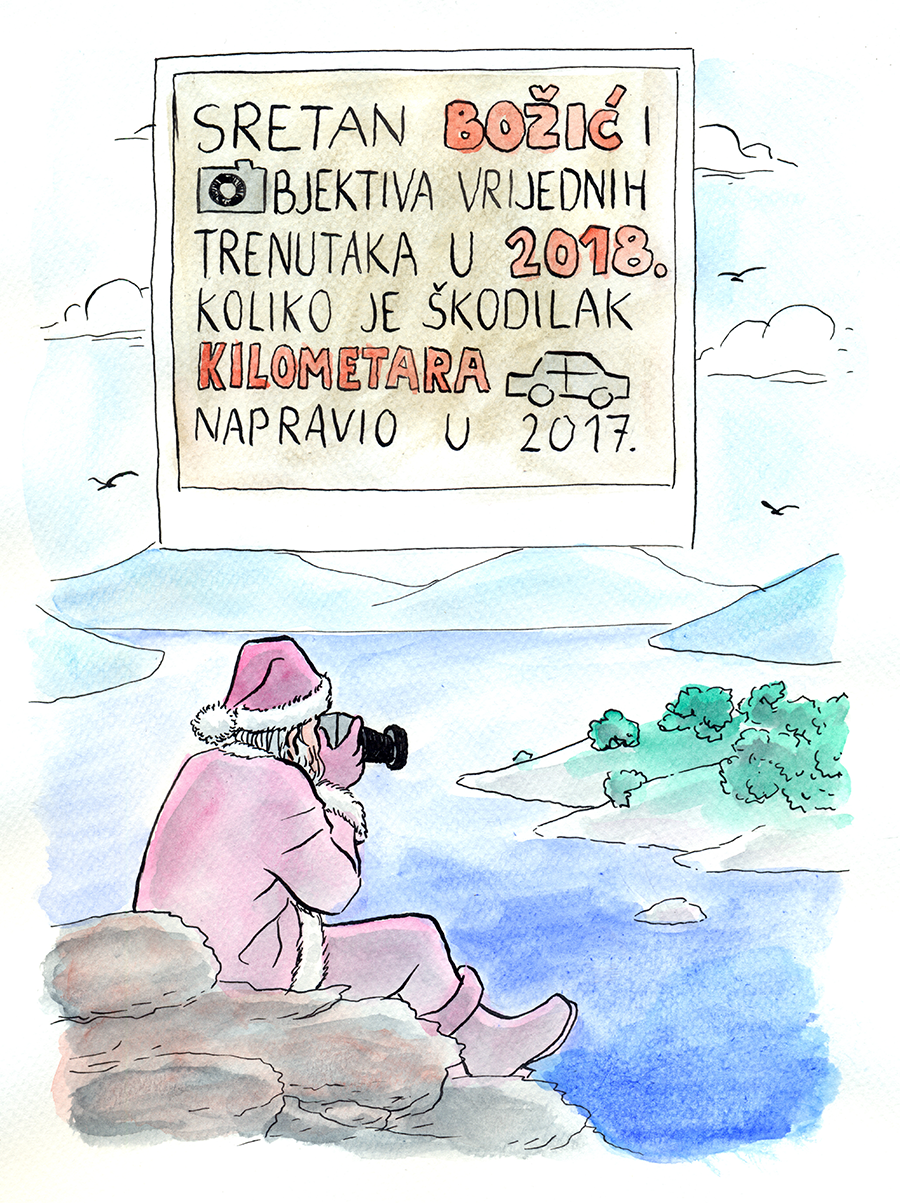 SRETAN BOŽIĆ I
OBJEKTIVA VRIJEDNIH
TRENUTAKA U 2018.
KOLIKO JE ŠKODILAK
KILOMETARA
NAPRAVIO U 2017.